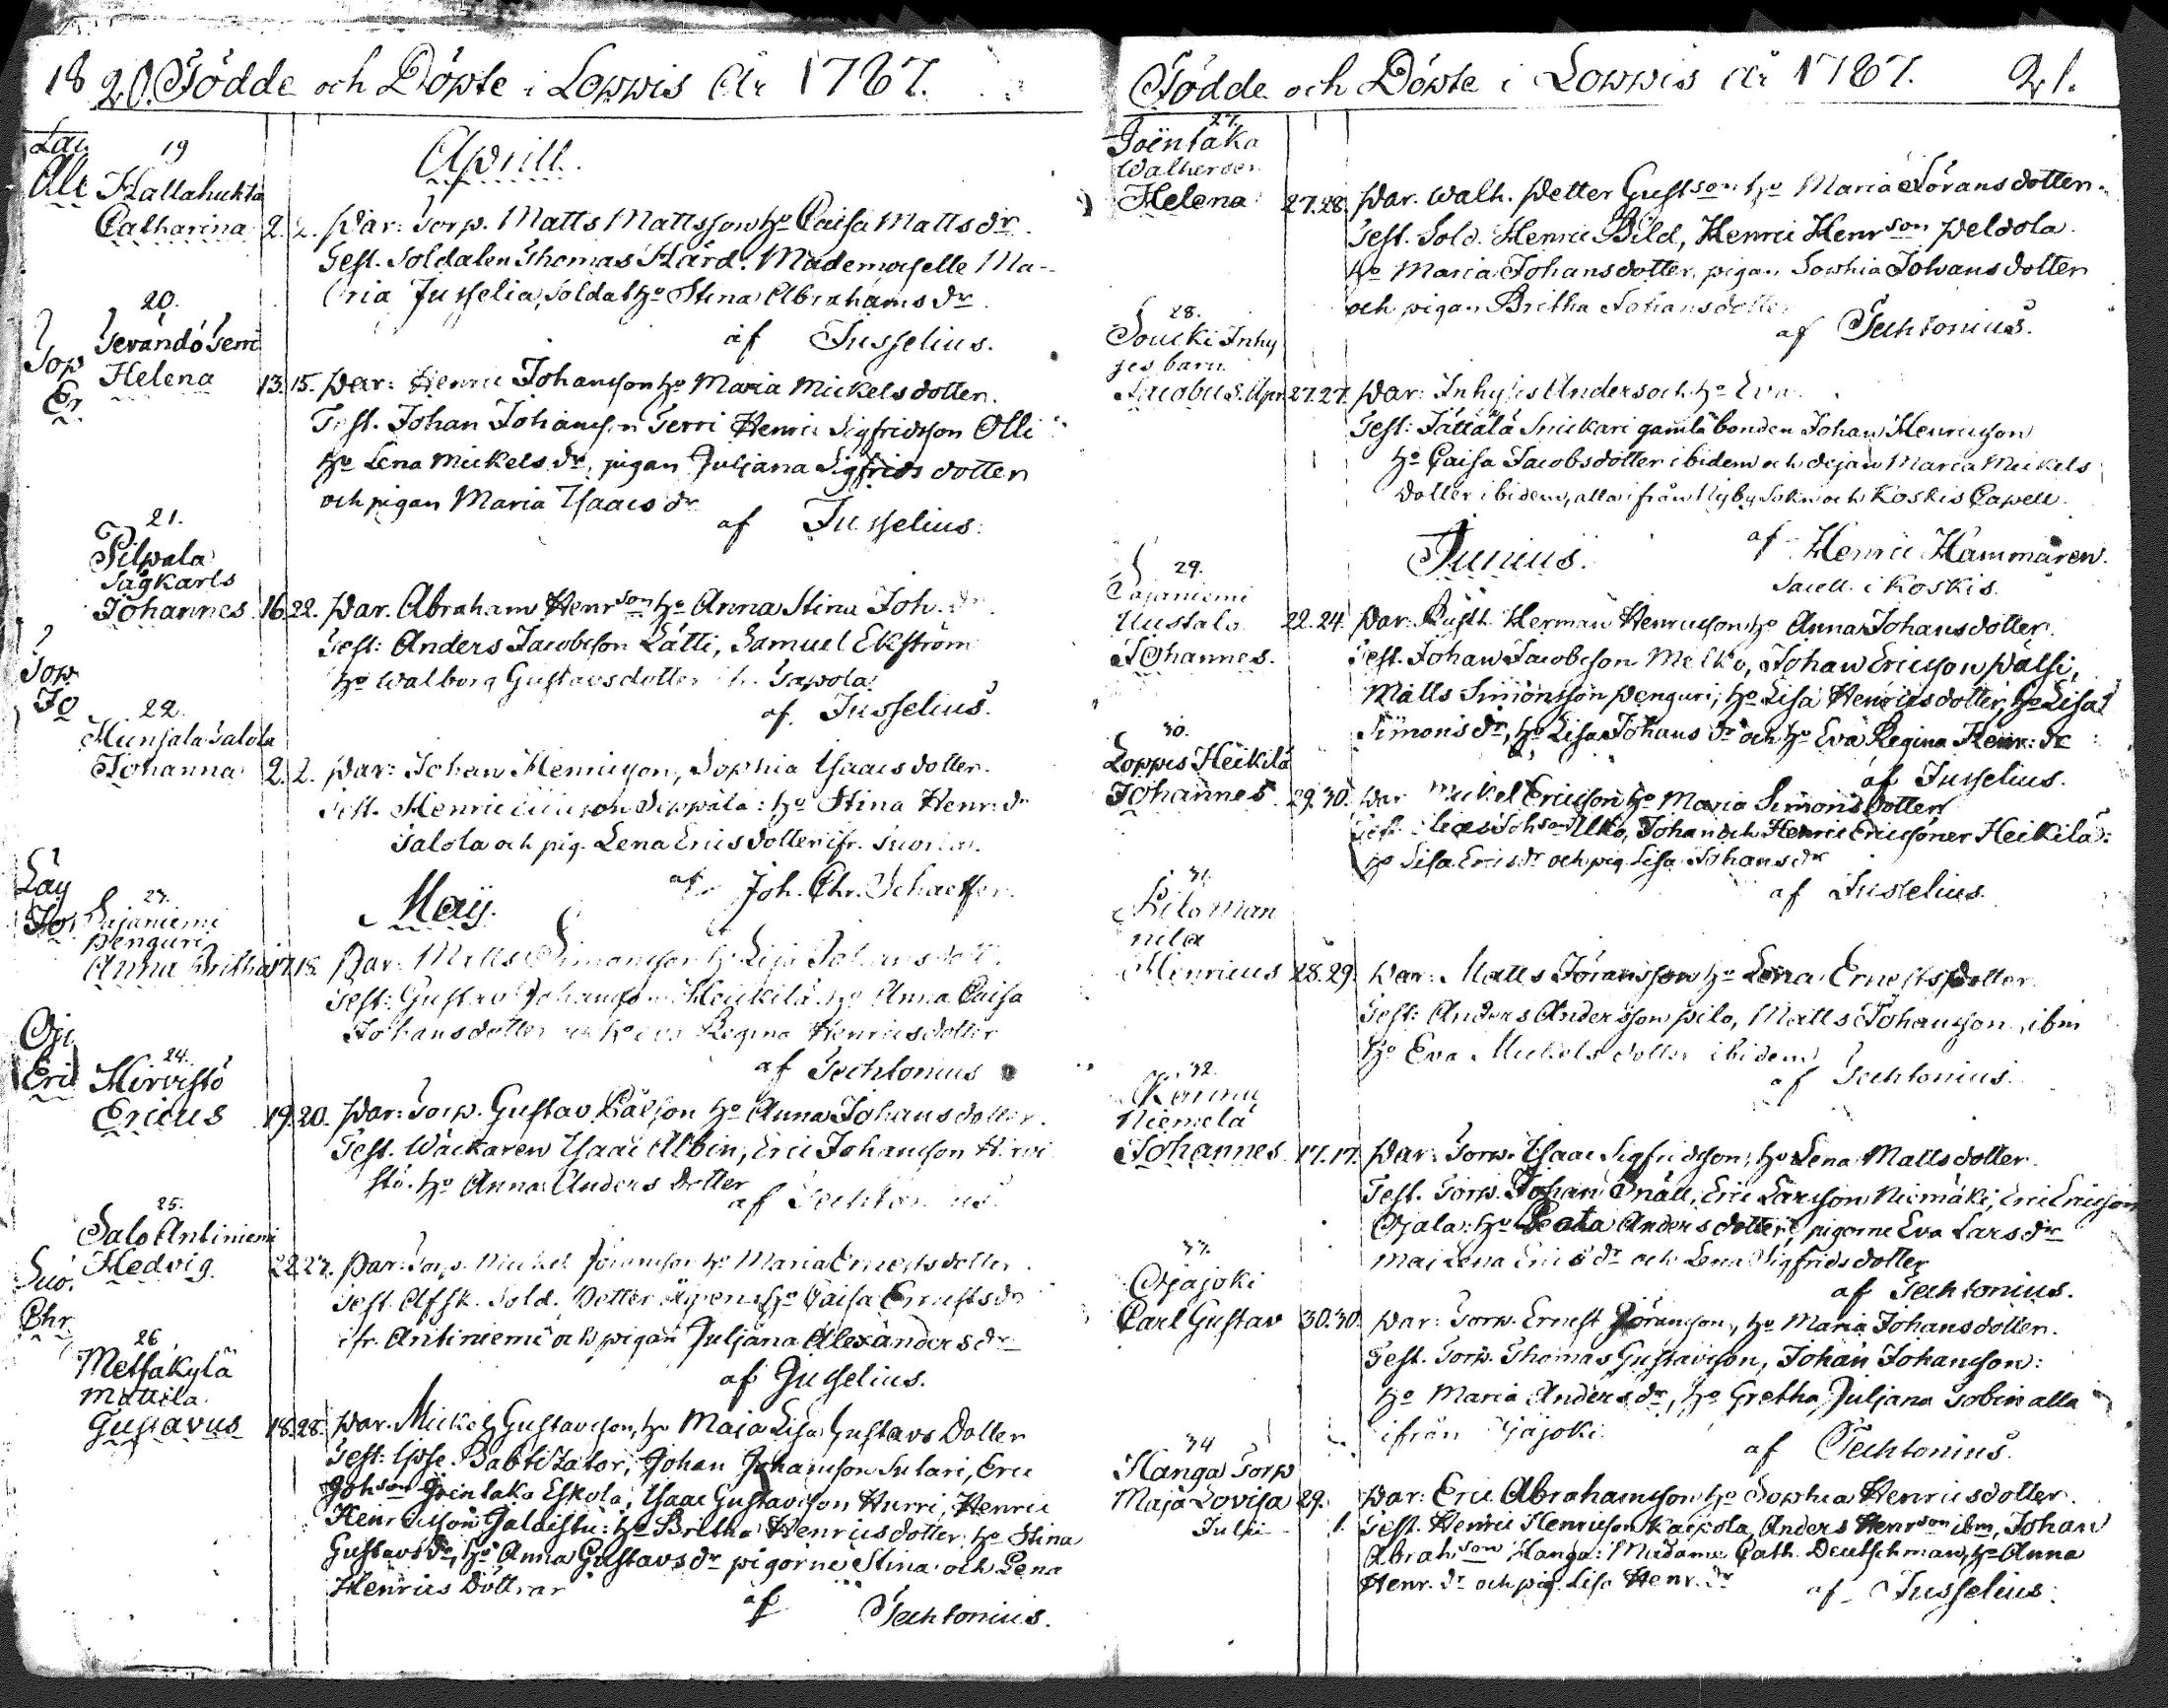 18 20. Födde och Döpte i Loppis År 1787.
Aprill.
19
Hallahuhta
Catharina 2. 2. Par: Torp. Matts Mattsson hu Caisa Matts dr.
Test. Soldaten Thomas Hård. Mademoiselle Ma-
ria Jusselia, Soldat hu Stina Abrahams dr.
af Jusselius.
20.
Terri
Helena 13. 15. Par: Henric Johansson hu Maria Mickels dotter.
Test. Johan Johansson Terri Henric Sigfridsson Olli
hu Lena Mickels dr, pigan Juljana Sigfrids dotter
och pigan Maria Isaacs dr
af Jusselius.
21.
Pilpala
Sågkarls
Johannes 16. 22. Par. Abraham Henrson hu Anna Stina Joh. dr.
Test: Anders Jacobsson Lätti, Samuel Ekström
hu Walborg Gustavsdotter Sapola.
af. Jusselius.
22.
Salola
Johanna 2. 2. Par: Johan Henricsson, Sophia Isaacs dotter.
Test. Henric Seppälä: hu Stina Henr. dr
Salola och pig. Lena Erics dotter ifr.
af Joh. Chr. Schaeffer.
Maij.
23.
Sajaniemi
Penguri
Anna Britha 17. 18. Par: Matts Simonsson hu Lisa Johans dott.
Test: Gustav Johansson Heickilä. hu Anna Caisa
Johansdotter och hu Eva Regina Henrics dotter
af Techtonius
24.
Hirvistö
Ericus 19. 20. Par: Torp. Gustav hu Anna Johans dotter.
Test. Wäckaren Isaac Albin, Eric Johansson Hirvi
stö. hu Anna Anders dotter
af Techtonius.
25.
Salo Antiniemi
Hedvig 22. 27. Par: Torp. Michel Jöransson hu Maria Ernests dotter
Test. Afsk. Sold. Petter hu Caisa Ernests dr
ifr. Antiniemi och pigan Juljana Alexanders dr
af Jusselius.
26
Metsäkylä
Mattila
Gustavus 18. 28. Par. Mickel Gustavsson, hu Maja Lisa Gustavs Dotter
Test: Ipse Babtizator, Johan Johansson Sulari, Eric
Johson Joenlaka Eskola, Isaac Gustavsson Hurri, Henric
Henricsson Jaloistu: hu Britha Henrics dotter, hu Stina
Gustavs dr, hu Anna Gustavs dr pigorne Stina och Lena
Henrics Döttrar
af Techtonius.
Födde och Döpte i Loppis År 1787. 21.
27.
Joenlaka
Helena 27. 28. Par. Walh. Petter Gustson hu Maria Jörans dotter.
Test. Sold. Henric Bild, Henric Henrson Peldola.
hu Maria Johansdotter, pigan Sophia Johans dotter
och pigan Britha Johansdotter
af Techtonius.
28.
Soucki Inhy
ses barn
Jacobus. Apr. 27. 27. Par: Inhyses Anders och hu Eva.
Test: Jättälä Snickari gamla bonden Johan Henricsson
hu Caisa Jacobsdotter ibidem och dejan Maria Mickels
dotter ibidem, alla ifrån Kyby Sokn och Koskis Capell.
af Henric Hammaren.
Sacell. i Koskis.
Junius.
29.
Sajaniemi
Uustalo
Johannes. 22. 24. Par: Rusth. Herman Henricsson hu Anna Johansdotter.
Test. Johan Jacobsson Melko, Johan Ericsson Pälsi,
Matts Simonsson Penguri, hu Lisa Henricsdotter, hu Lisa
Simons dr, hu Lisa Johans dr och hu Eva Regina Henr: dr
af Jusselius.
30.
Loppis Heikilä
Johannes. 29. 30. Par Mickel Ericsson hu Maria Simons dotter
Test. Johson Uko, Johan och Henric Ericssoner Heikilä:
hu Lisa Erics dr och pig Lisa Johans dr
af Jusselius.
31.
Pilo Man
nila
Henricus 28. 29. Par: Matts Jöransson hu Lena Ernests dotter.
Test: Anders Andersson Pilo, Matts Johansson ibm
hu Eva Mickels dotter ibidem
af Techtonius.
32.
Niemelä
Johannes. 17. 17. Par: Torp. Isaac Sigfridsson, hu Lena Matts dotter.
Test. Torp. Johan Snäll, Eric Larsson Niemäki, Eric Ericsson
Ojala: hu Beata Anders dotter, pigorne Eva Lars dr
Maj Lena Erics dr och Lena Sigfrids dotter
af Techtonius.
33.
Ojajoki
Carl Gustav 30. 30. Par: Torp. Ernest Jöransson, hu Maria Johans dotter.
Test. Torp. Thomas Gustavsson, Johan Johansson:
hu Maria Anders dr, hu Gretha Juljana Tobin alla
ifrån Ojajoki.
af Techtonius.
34
Hanga Torp
Maja Lovisa 29. Par: Eric Abrahamsson hu Sophia Henrics dotter.
Julii 1. Test. Henric Henricsson Kaipola, Anders Henrson ibm, Johan
Abrahson Hanga: Madame Cath. Deutschman, hu Anna
Henr. dr och pig. Lisa Henr. dr
af Jusselius.